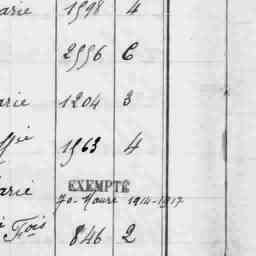 arie 1598 4
2556 6
arie 1204 3
1563 4
arie EXEMPTÉ
70-Maure 1914-1917
Fçois 846 2